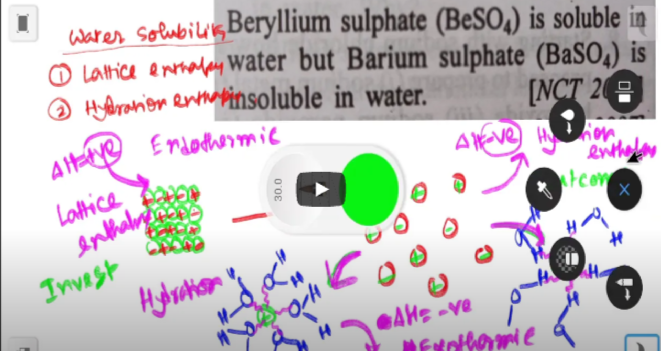 Water solubility
① Lattice enthalpy
② Hydration enthalpy
Beryllium sulphate (BeSO₄) is soluble in
water but Barium sulphate (BaSO₄) is
insoluble in water. [NCT 20
ΔH=+ve Endothermic
Lattice
enthalpy
Invest
ΔH=-ve Hydration
enthalpy
30.0
Hydration
ΔH= -ve
Exothermic
H
O